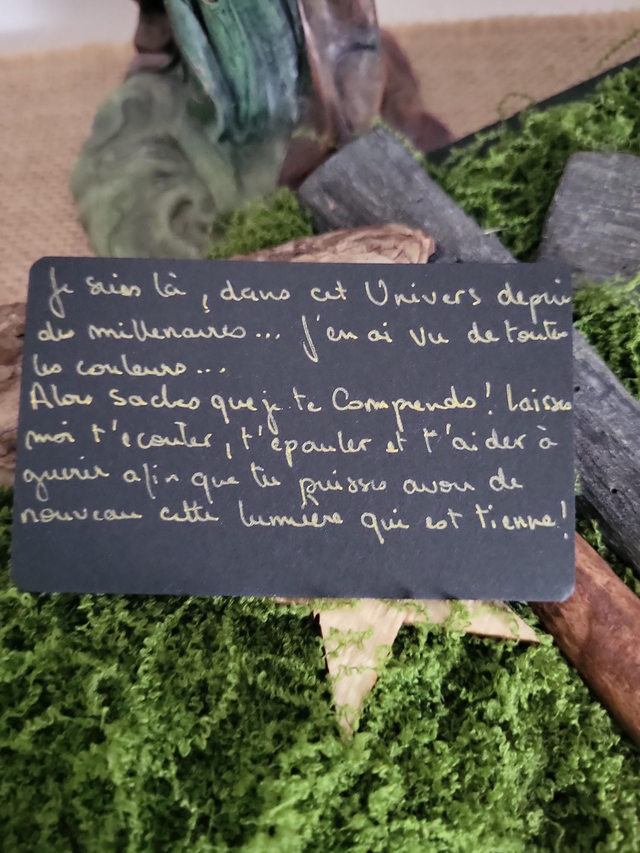 Je suis là, dans cet Univers depuis
des millenaires... J'en ai vu de toutes
les couleurs...
Alors saches que je te Comprends! Laisses
moi t'écouter, t'épauler et t'aider à
guerir afin que tu puisses avoir de
nouveau cette lumière qui est tienne!